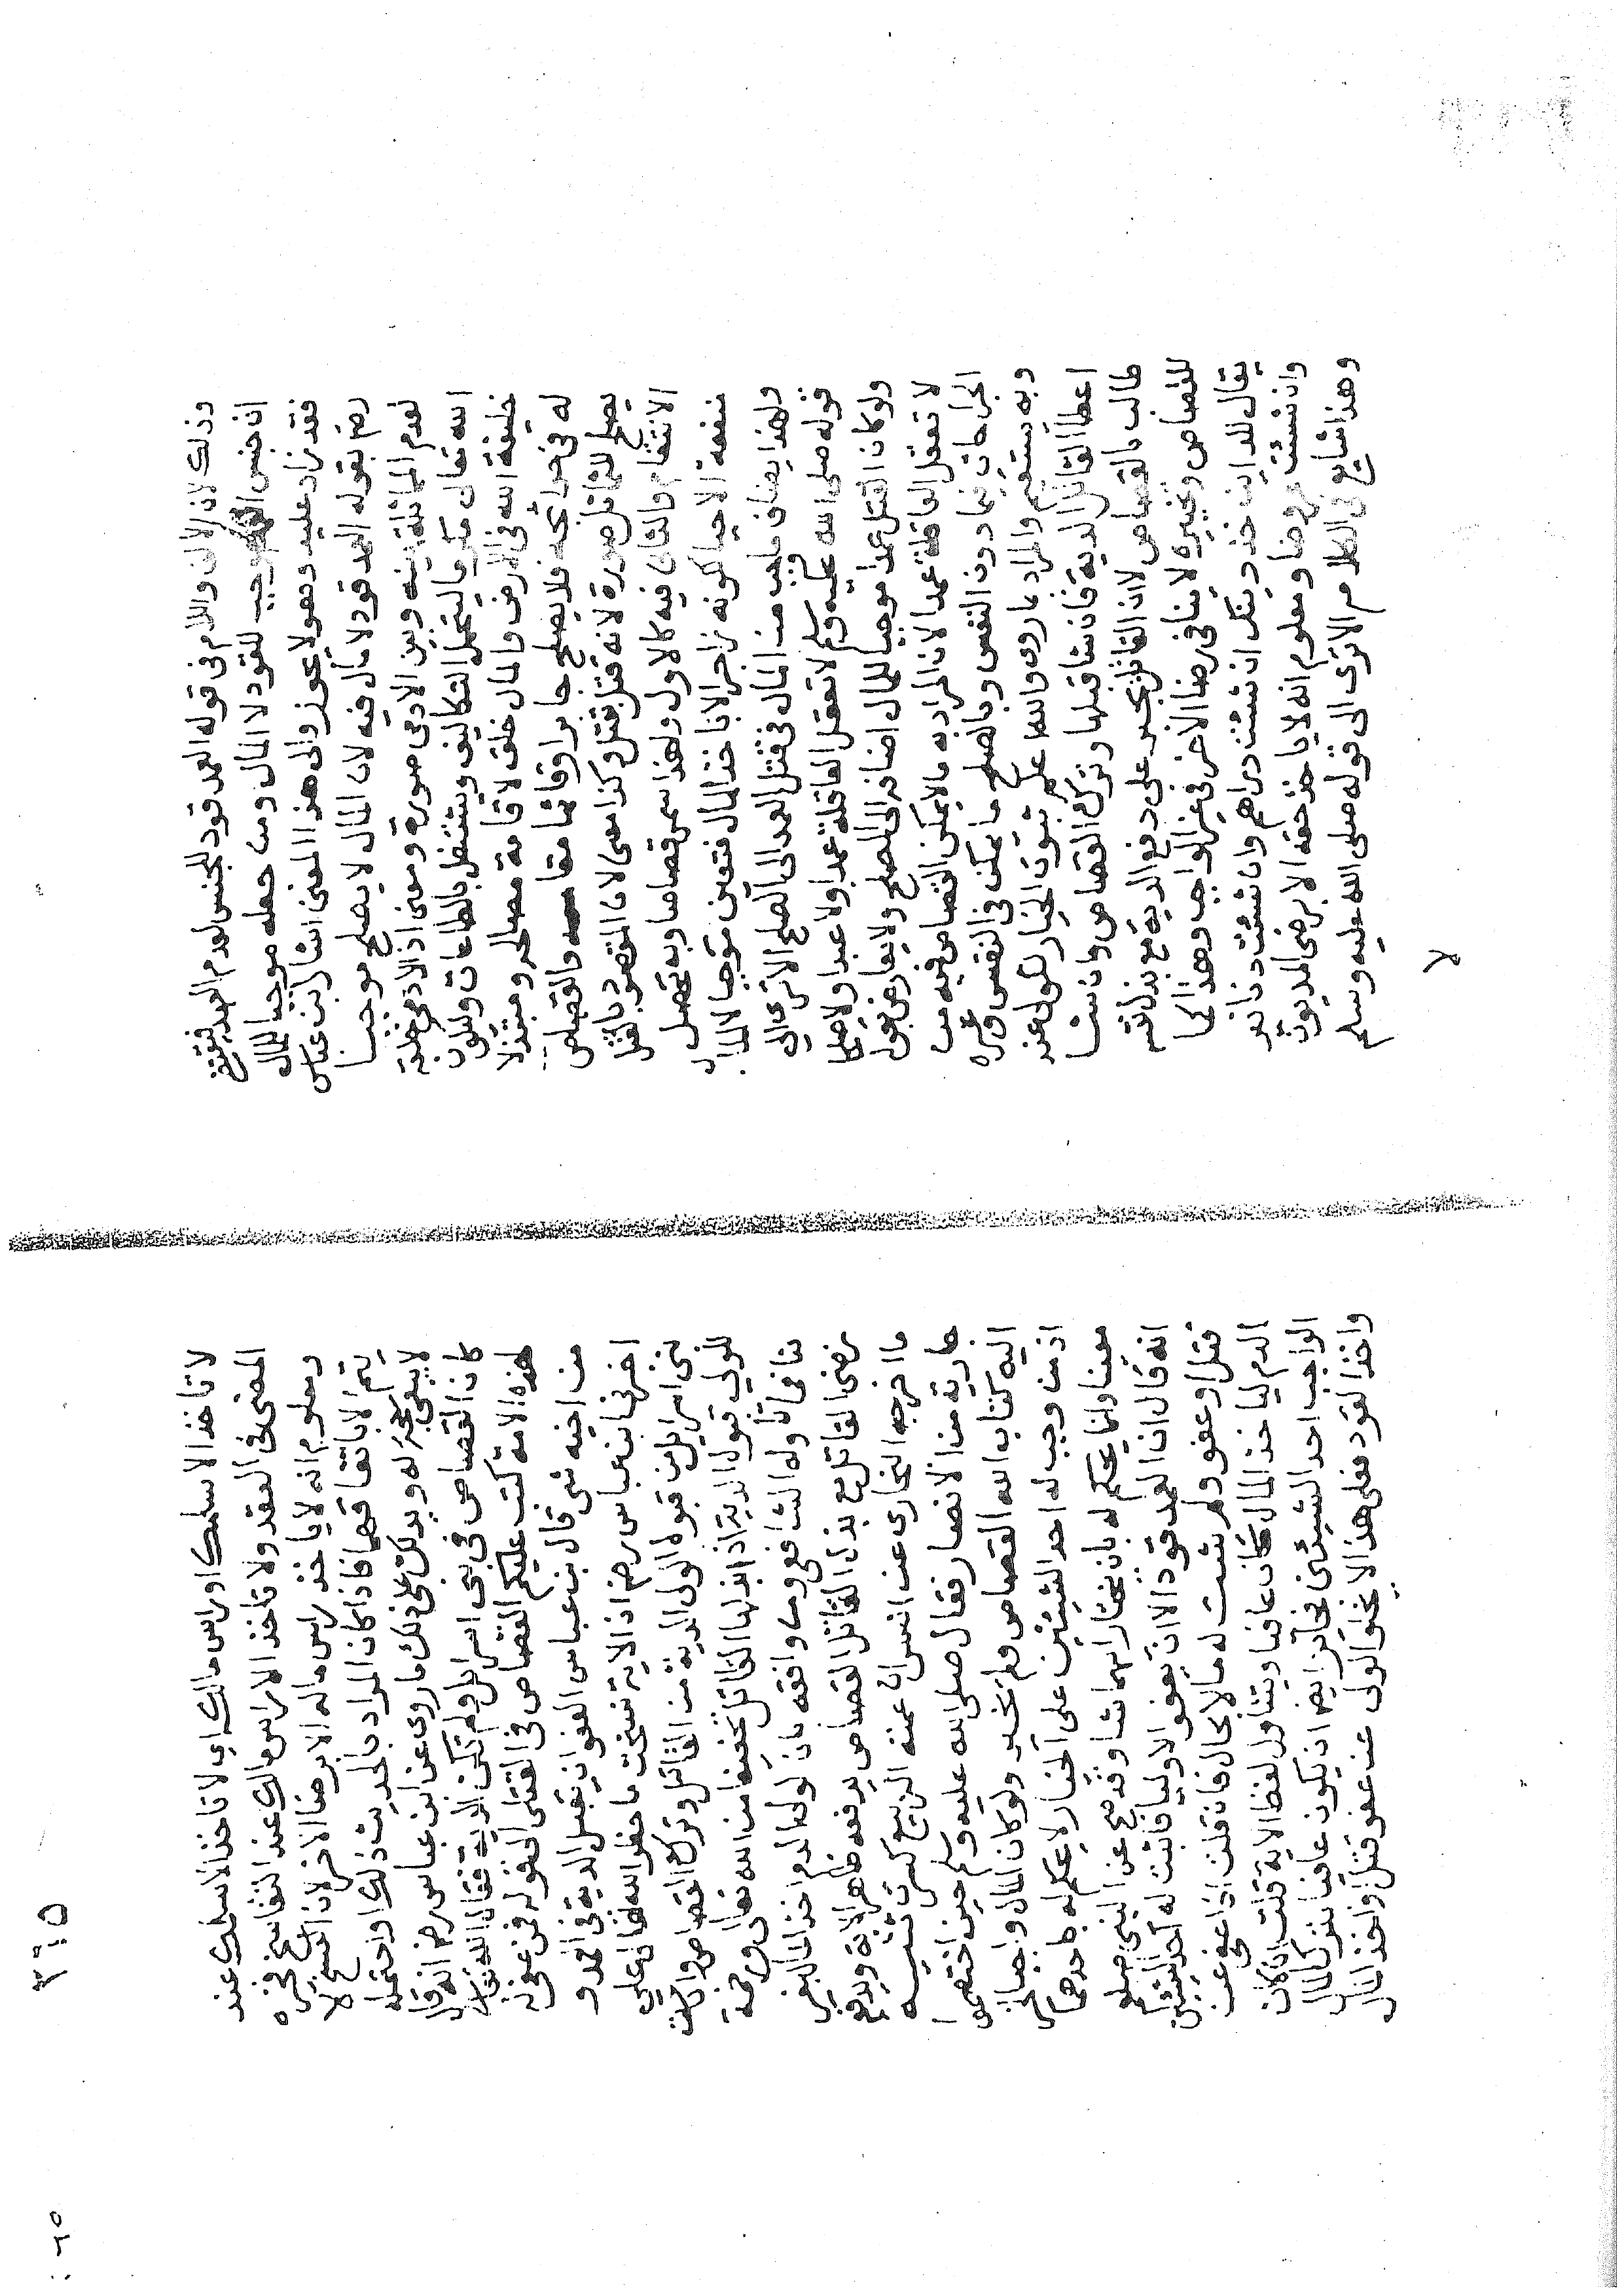 وذلك لان الالف واللام فى قوله العمد قود للجنس لعدم العهد فيقتضي
ان جنس العمد موجب للقود لا المال ومن جعله موجبا للمال
فقد زاد عليه وهو لا يجوز والى هذا المعنى اشار ابن عباس
رضـ بقوله العمد قود لا مال فيه لان المال لا يصلح موجبا
لعدم المماثلة بينه وبين الادمى صورة ومعنى اذ الادمى خلقه
الله تعالى مكرما ليتحمل التكاليف ويشتغل بالطاعات وليكون
خليفة الله فى الارض والمال خلق لاقامة مصالحه ومبتذلا
له فى حوائجه فلا يصلح جابرا وقائما مقامه والقصاص
يصلح للتماثل صورة لانه قتل بقتل وكذا معنى لان المقصود بالقتل
الانتقام والثانى فيه كالاول ولهذا سمى قصاصا وبه تحصل
منفعة الاحيا لكونه زاجرا لا باخذ المال فتعين موجبا لا المال
ولهذا يضاف ما يجب من المال فى قتل العمد الى الصلح الا ترى الى
قوله صلى الله عليه وسلم لا تعقل العاقلة عمدا ولا عبدا ولا صلحا
ولو كان القتل عمدا موجبا للمال اضافه الى الصلح ولا يعارض بقوله
لا تعقل العاقلة عمدا لان المراد به ما لا يمكن القصاص فيه من
الجراحات فيما دون النفس وبالصلح ما يمكن فى النفس وغيره
وبه يستقيم والمراد بما روى والله اعلم ثبوت الخيار للولى عند
اعطا القاتل الدية فان شا قبلها وترك القصاص وان شا
طالب بالقصاص لا ان القاتل يجبر على دفع الدية مع بذل نفسه
للقصاص وتخييره لا ينافى رضا الاخر فى غير الواجب وهذا كما
يقال للداين خذ دينك ان شئت دراهم وان شئت دنانير
وان شئت عروضا ومعلوم انه لا ياخذ حقه الا برضى المديون
وهذا شايع فى الكلام الا ترى الى قوله صلى الله عليه وسلم
لا
٣٦٥
لا تاخذ الا سلمك او راس مالك اى لا تاخذ الا سلمك عند
المضى فى العقد ولا تاخذ الا راس مالك عند التفاسخ فخيره
ومعلوم انه لا ياخذ راس ماله الا برضا الاخر لان الفسخ لا
يتم الا باتفاقهما فاذا كان المراد بالحديث ذلك او احتمله
لا يبقى حجة له ويدل على ذلك ما روى عن ابن عباس رضـ انه قال
كان القصاص فى بنى اسرايل ولم تكن الدية فقال الله تعالى
لهذه الامة كتب عليكم القصاص فى القتلى الى قوله فمن عفى له
من اخيه شى قال ابن عباس العفو ان يقبل الدية فى العمد و
اخبرنا ابن عباس رضـ ان الاية نسخت ما حظر الله تعالى على
بنى اسرايل من قبول الدية من القاتل وترك القصاص واباحت
للولى قبول الدية اذا بذلها القاتل تخفيفا من الله تعالى ورحمة
ننا فى تأويله الشافعى ومن وافقه بان لولى الدم اخذ المال بغير
رضى القاتل مع بذل القاتل القصاص يدفعه ظاهر الاية ويدفع
ما اخرجه البخارى عن انس ان عمته الربيع كسرت ثنية
جارية من الانصار فقال صلى الله عليه وسلم حين اختصموا
اليه كتاب الله القصاص ولم يخير ولو كان المال واجبا لخير
اذ من وجب له احد الشيئين على الخيار لا يحكم له باحدهما
معينا وانما يحكم له بان يختار ايهما شا وقد صح عن النبى صلعم
انه قال ان العمد قود الا ان يعفو الاوليا فاثبت له احد الشيئين
قتل او عفو ولم يثبت له مالا بحال فان قلت اذا عفى عن
الدم لياخذ المال كان عافيا ويتناوله لفظ الاية قلت ان كان
الواجب احد الشيئين فجائز ايضا ان يكون عافيا بترك المال
واخذ القود فعلى هذا لا يخلو الولى عن عفو قتل او اخذ المال